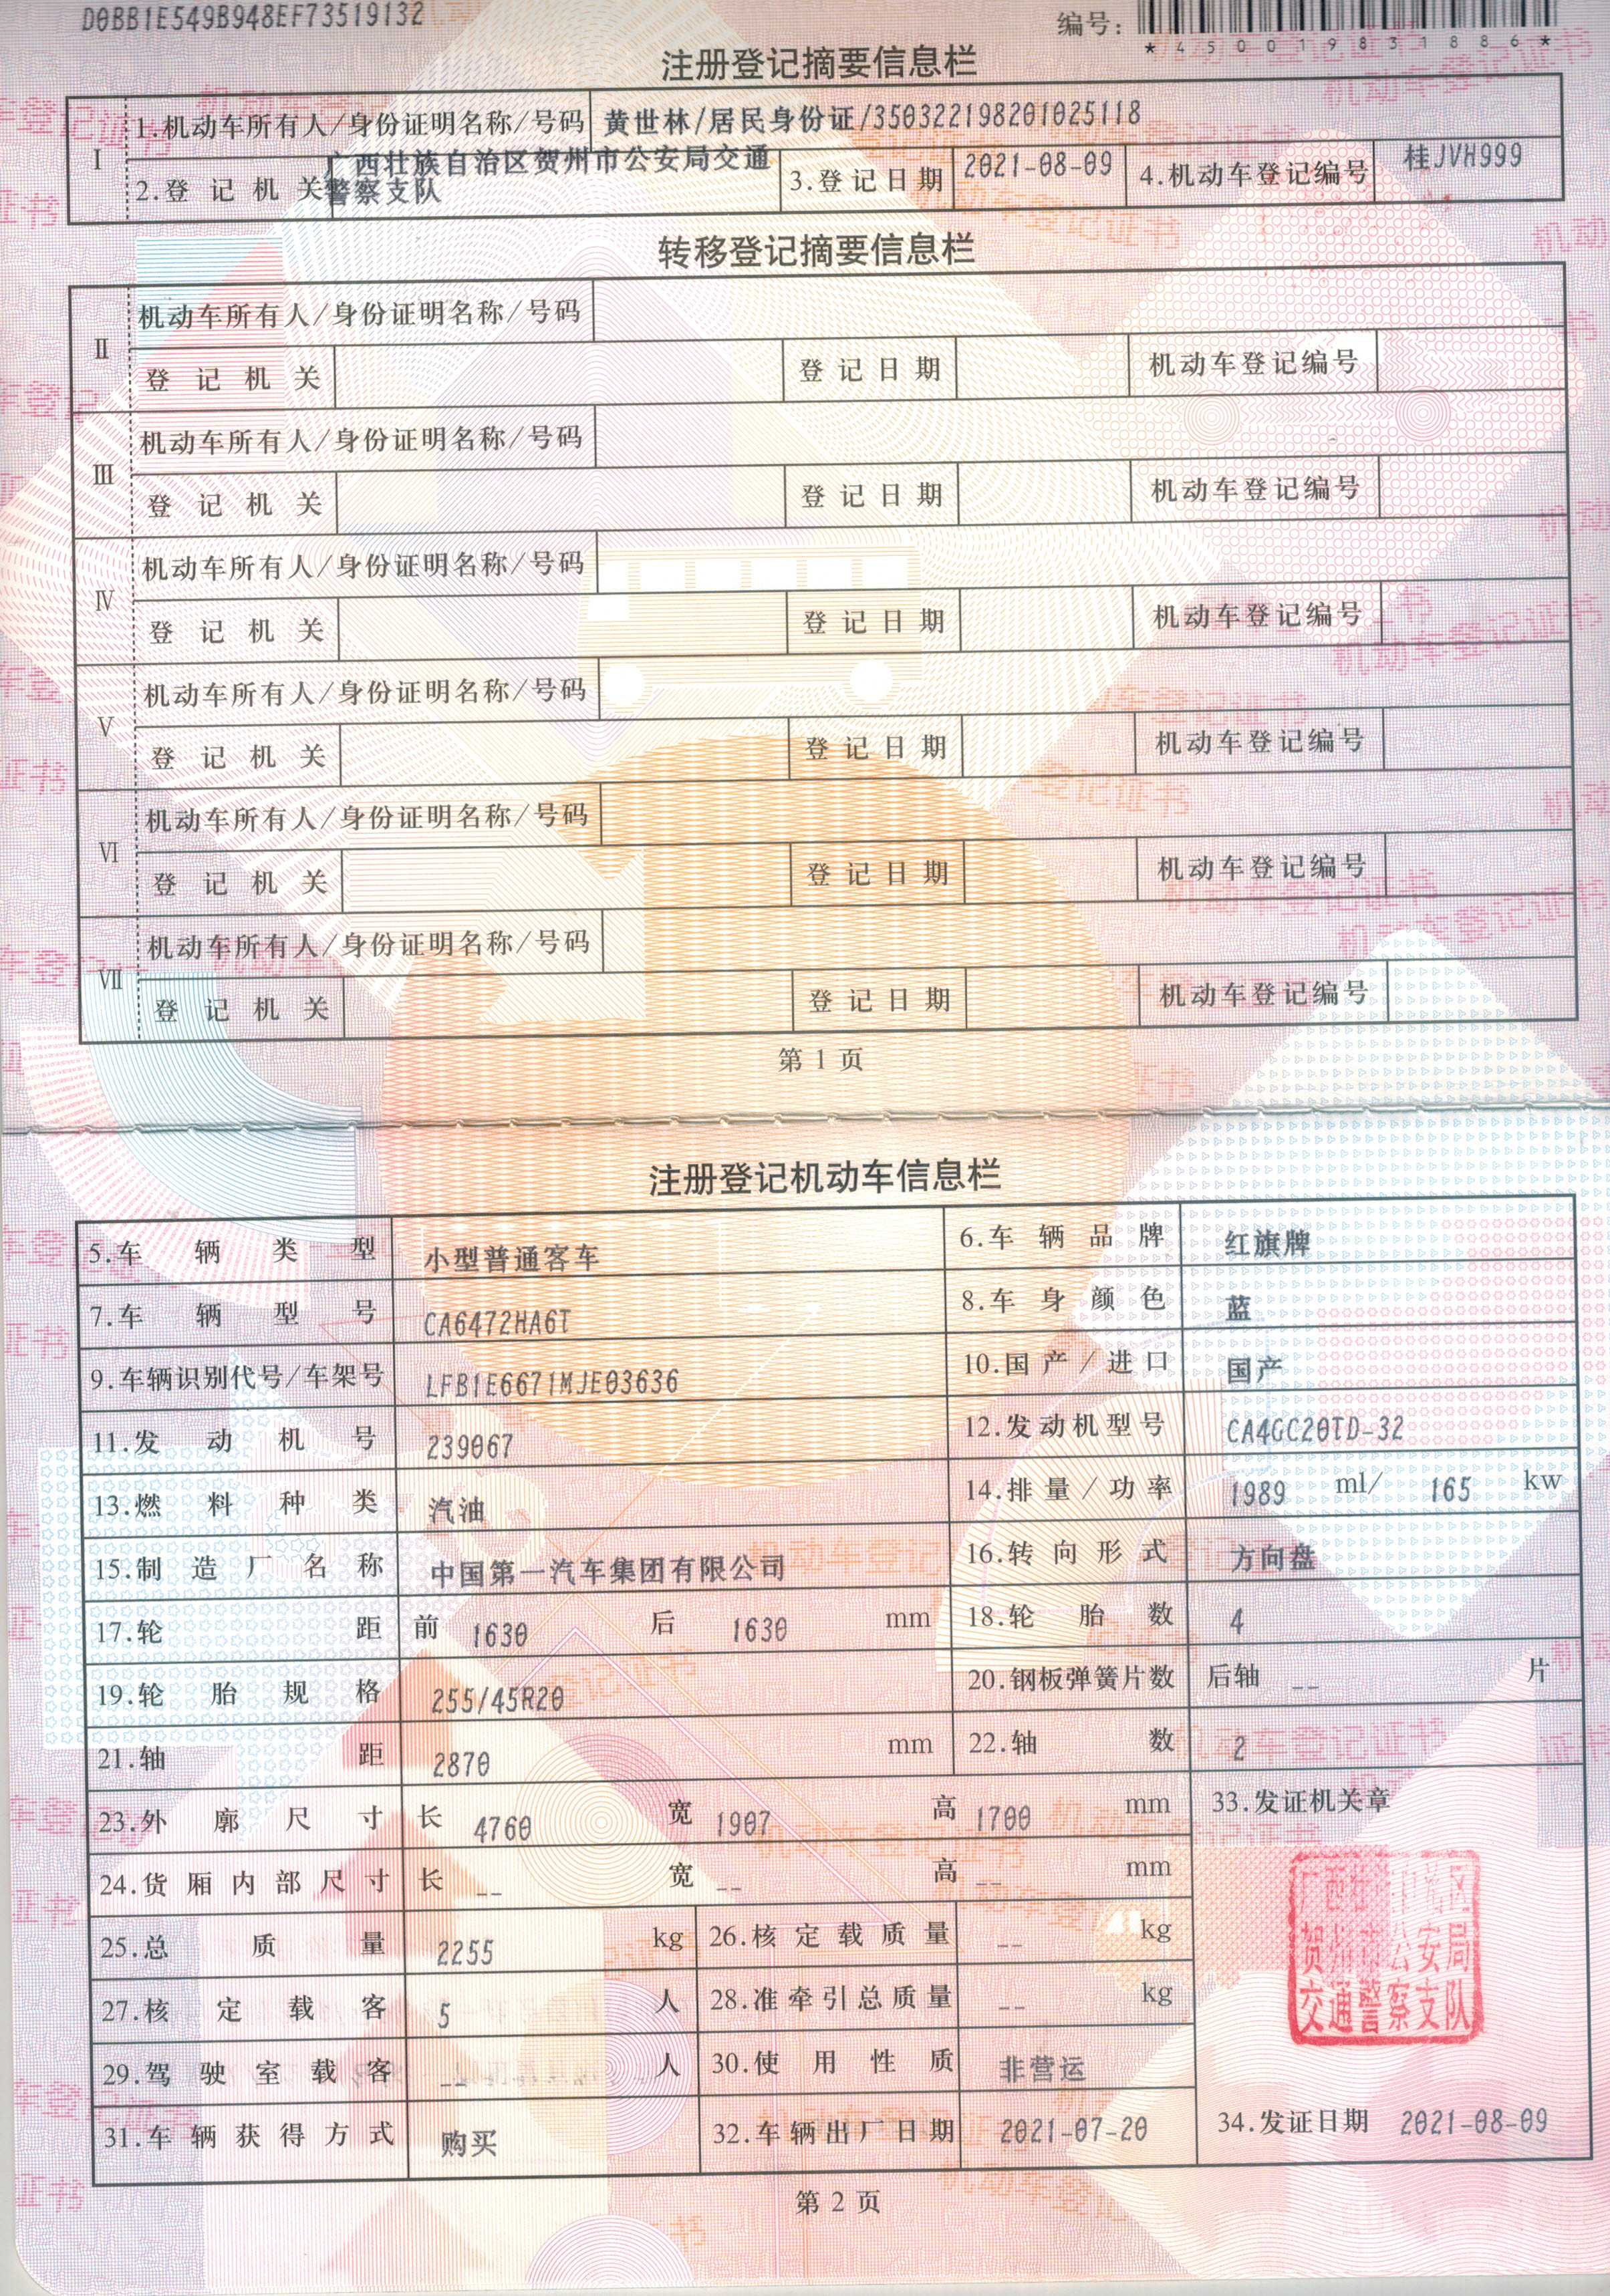 D0BB1E549B948EF73519132
编号:
*450019831886*
注册登记摘要信息栏
I
1.机动车所有人/身份证明名称/号码 黄世林/居民身份证/350322198201025118
2.登记机关 广西壮族自治区贺州市公安局交通警察支队 3.登记日期 2021-08-09 4.机动车登记编号 桂JVH999
转移登记摘要信息栏
II
机动车所有人/身份证明名称/号码
登记机关 登记日期 机动车登记编号
III
机动车所有人/身份证明名称/号码
登记机关 登记日期 机动车登记编号
IV
机动车所有人/身份证明名称/号码
登记机关 登记日期 机动车登记编号
V
机动车所有人/身份证明名称/号码
登记机关 登记日期 机动车登记编号
VI
机动车所有人/身份证明名称/号码
登记机关 登记日期 机动车登记编号
VII
机动车所有人/身份证明名称/号码
登记机关 登记日期 机动车登记编号
第 1 页
注册登记机动车信息栏
5.车辆类型 小型普通客车 6.车辆品牌 红旗牌
7.车辆型号 CA6472HA6T 8.车身颜色 蓝
9.车辆识别代号/车架号 LFB1E6671MJE03636 10.国产/进口 国产
11.发动机号 239067 12.发动机型号 CA4GC20TD-32
13.燃料种类 汽油 14.排量/功率 1989 ml/ 165 kw
15.制造厂名称 中国第一汽车集团有限公司 16.转向形式 方向盘
17.轮距 前 1630 后 1630 mm 18.轮胎数 4
19.轮胎规格 255/45R20 20.钢板弹簧片数 后轴 -- 片
21.轴距 2870 mm 22.轴数 2
23.外廓尺寸 长 4760 宽 1907 高 1700 mm 33.发证机关章
24.货厢内部尺寸 长 -- 宽 -- 高 -- mm
25.总质量 2255 kg 26.核定载质量 -- kg
27.核定载客 5 人 28.准牵引总质量 -- kg
29.驾驶室载客 -- 人 30.使用性质 非营运
31.车辆获得方式 购买 32.车辆出厂日期 2021-07-20 34.发证日期 2021-08-09
广西壮族自治区
贺州市公安局
交通警察支队
第 2 页